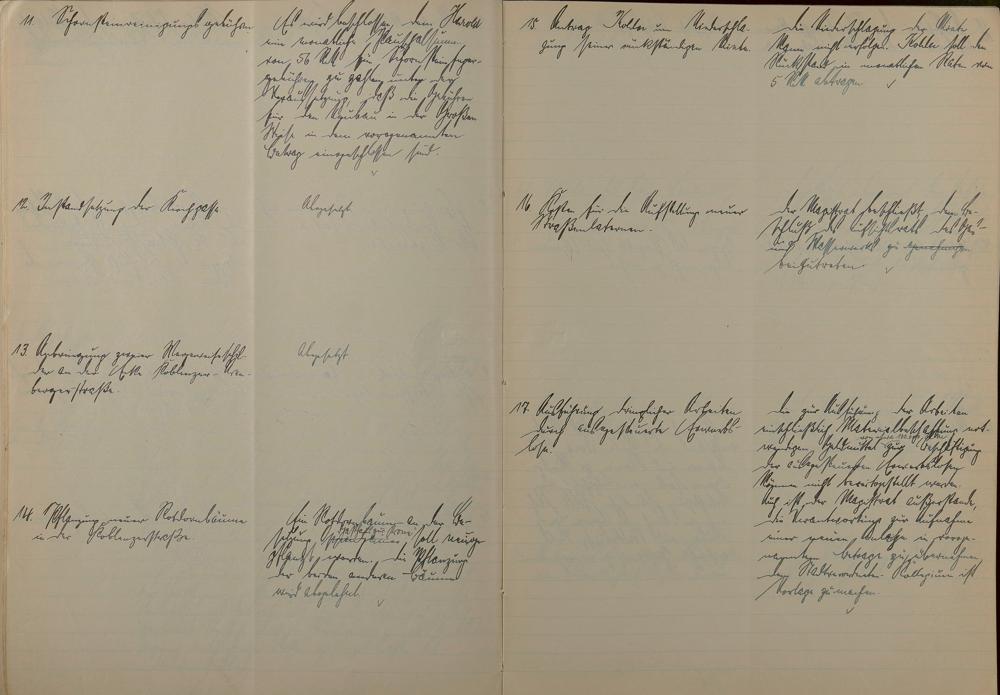 11. Schornsteinreinigungsgebühren
Es wird beschlossen, dem Harold
eine monatliche Pauschalsumme
von 56 RM für Schornsteinfeger-
gebühren zu zahlen unter der
Voraussetzung, daß die Gebühren
für den Neubau in der Großen
Wiese in dem vorgenannten
Betrag eingeschlossen sind.
12. Instandsetzung der Kirchgasse
Abgesetzt
13. Anbringung zweier Wegweiseschil-
der an der Ecke Koblenzer-Aren-
bergerstraße.
Abgesetzt
14. Pflanzung neuer Rotdornbäume
in der Koblenzerstraße.
Ein Rotdornbaum an der Be-
sitzung soll neu ge-
pflanzt werden, die Pflanzung
der beiden anderen Bäume
wird abgelehnt.
15. Antrag Kohler um Niederschla-
gung seiner rückständigen Miete.
Die Niederschlagung der Miete
kann nicht erfolgen. Kohler soll den
Rückstand in monatlichen Raten von
5 RM abtragen
16. Kosten für die Aufstellung neuer
Straßenlaternen.
Der Magistrat beschließt, dem Be-
schluß des Aufsichtsrats des Gas-
und Wasserwerks zu genehmigen
beizutreten.
17. Ausführung dringlicher Arbeiten
durch ausgesteuerte Erwerbs-
lose.
Die zur Ausführung der Arbeiten
einschließlich Materialbeschaffung not-
wendigen Geldmittel zur Beschäftigung
der ausgesteuerten Erwerbslosen
können nicht bereitgestellt werden.
Auch ist der Magistrat außerstande,
die Verantwortung zur Aufnahme
einer neuen Anleihe in vorge-
nanntem Betrage zu übernehmen.
Dem Stadtverordneten-Kollegium ist
Vorlage zu machen.